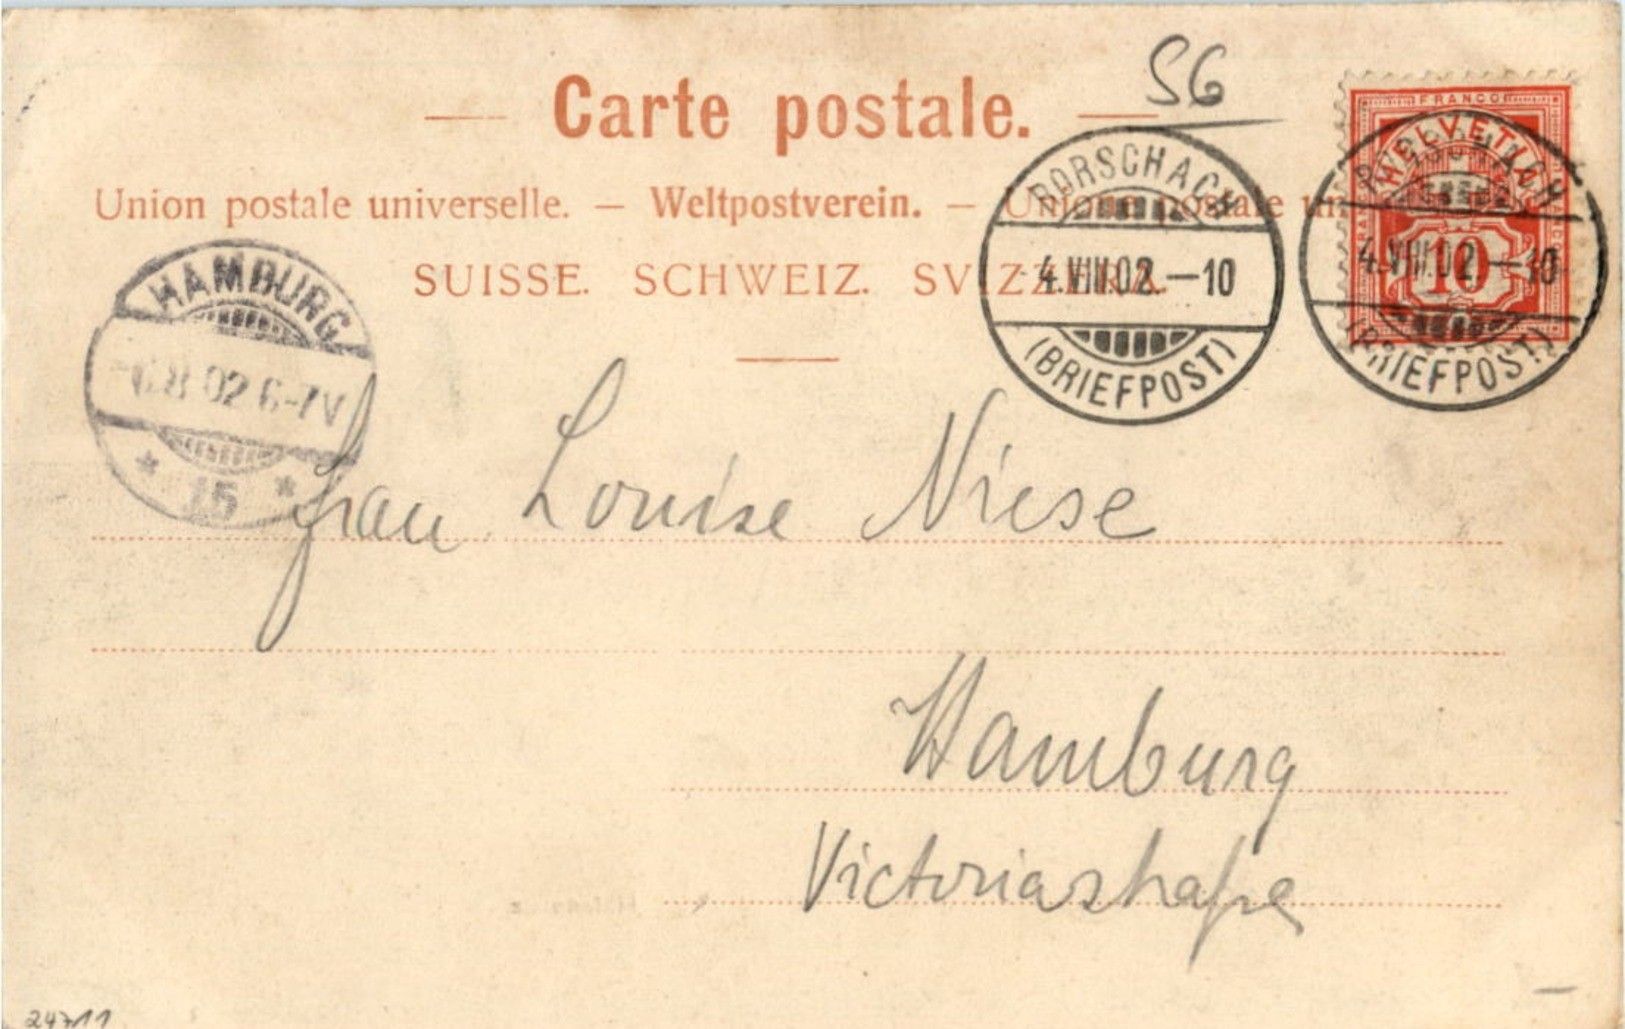 SG
Carte postale.
Union postale universelle. — Weltpostverein. — Unione postale un
SUISSE. SCHWEIZ. SVIZZERA.
FRANCO
HELVETIA
10
RORSCHACH
4.VIII.02.—10
(BRIEFPOST)
RORSCHACH
4.VIII.02.—10
(BRIEFPOST)
HAMBURG
6.8.02 6-7V
* 15 *
Frau Louise Niese
Hamburg
Victoriastraße
24711